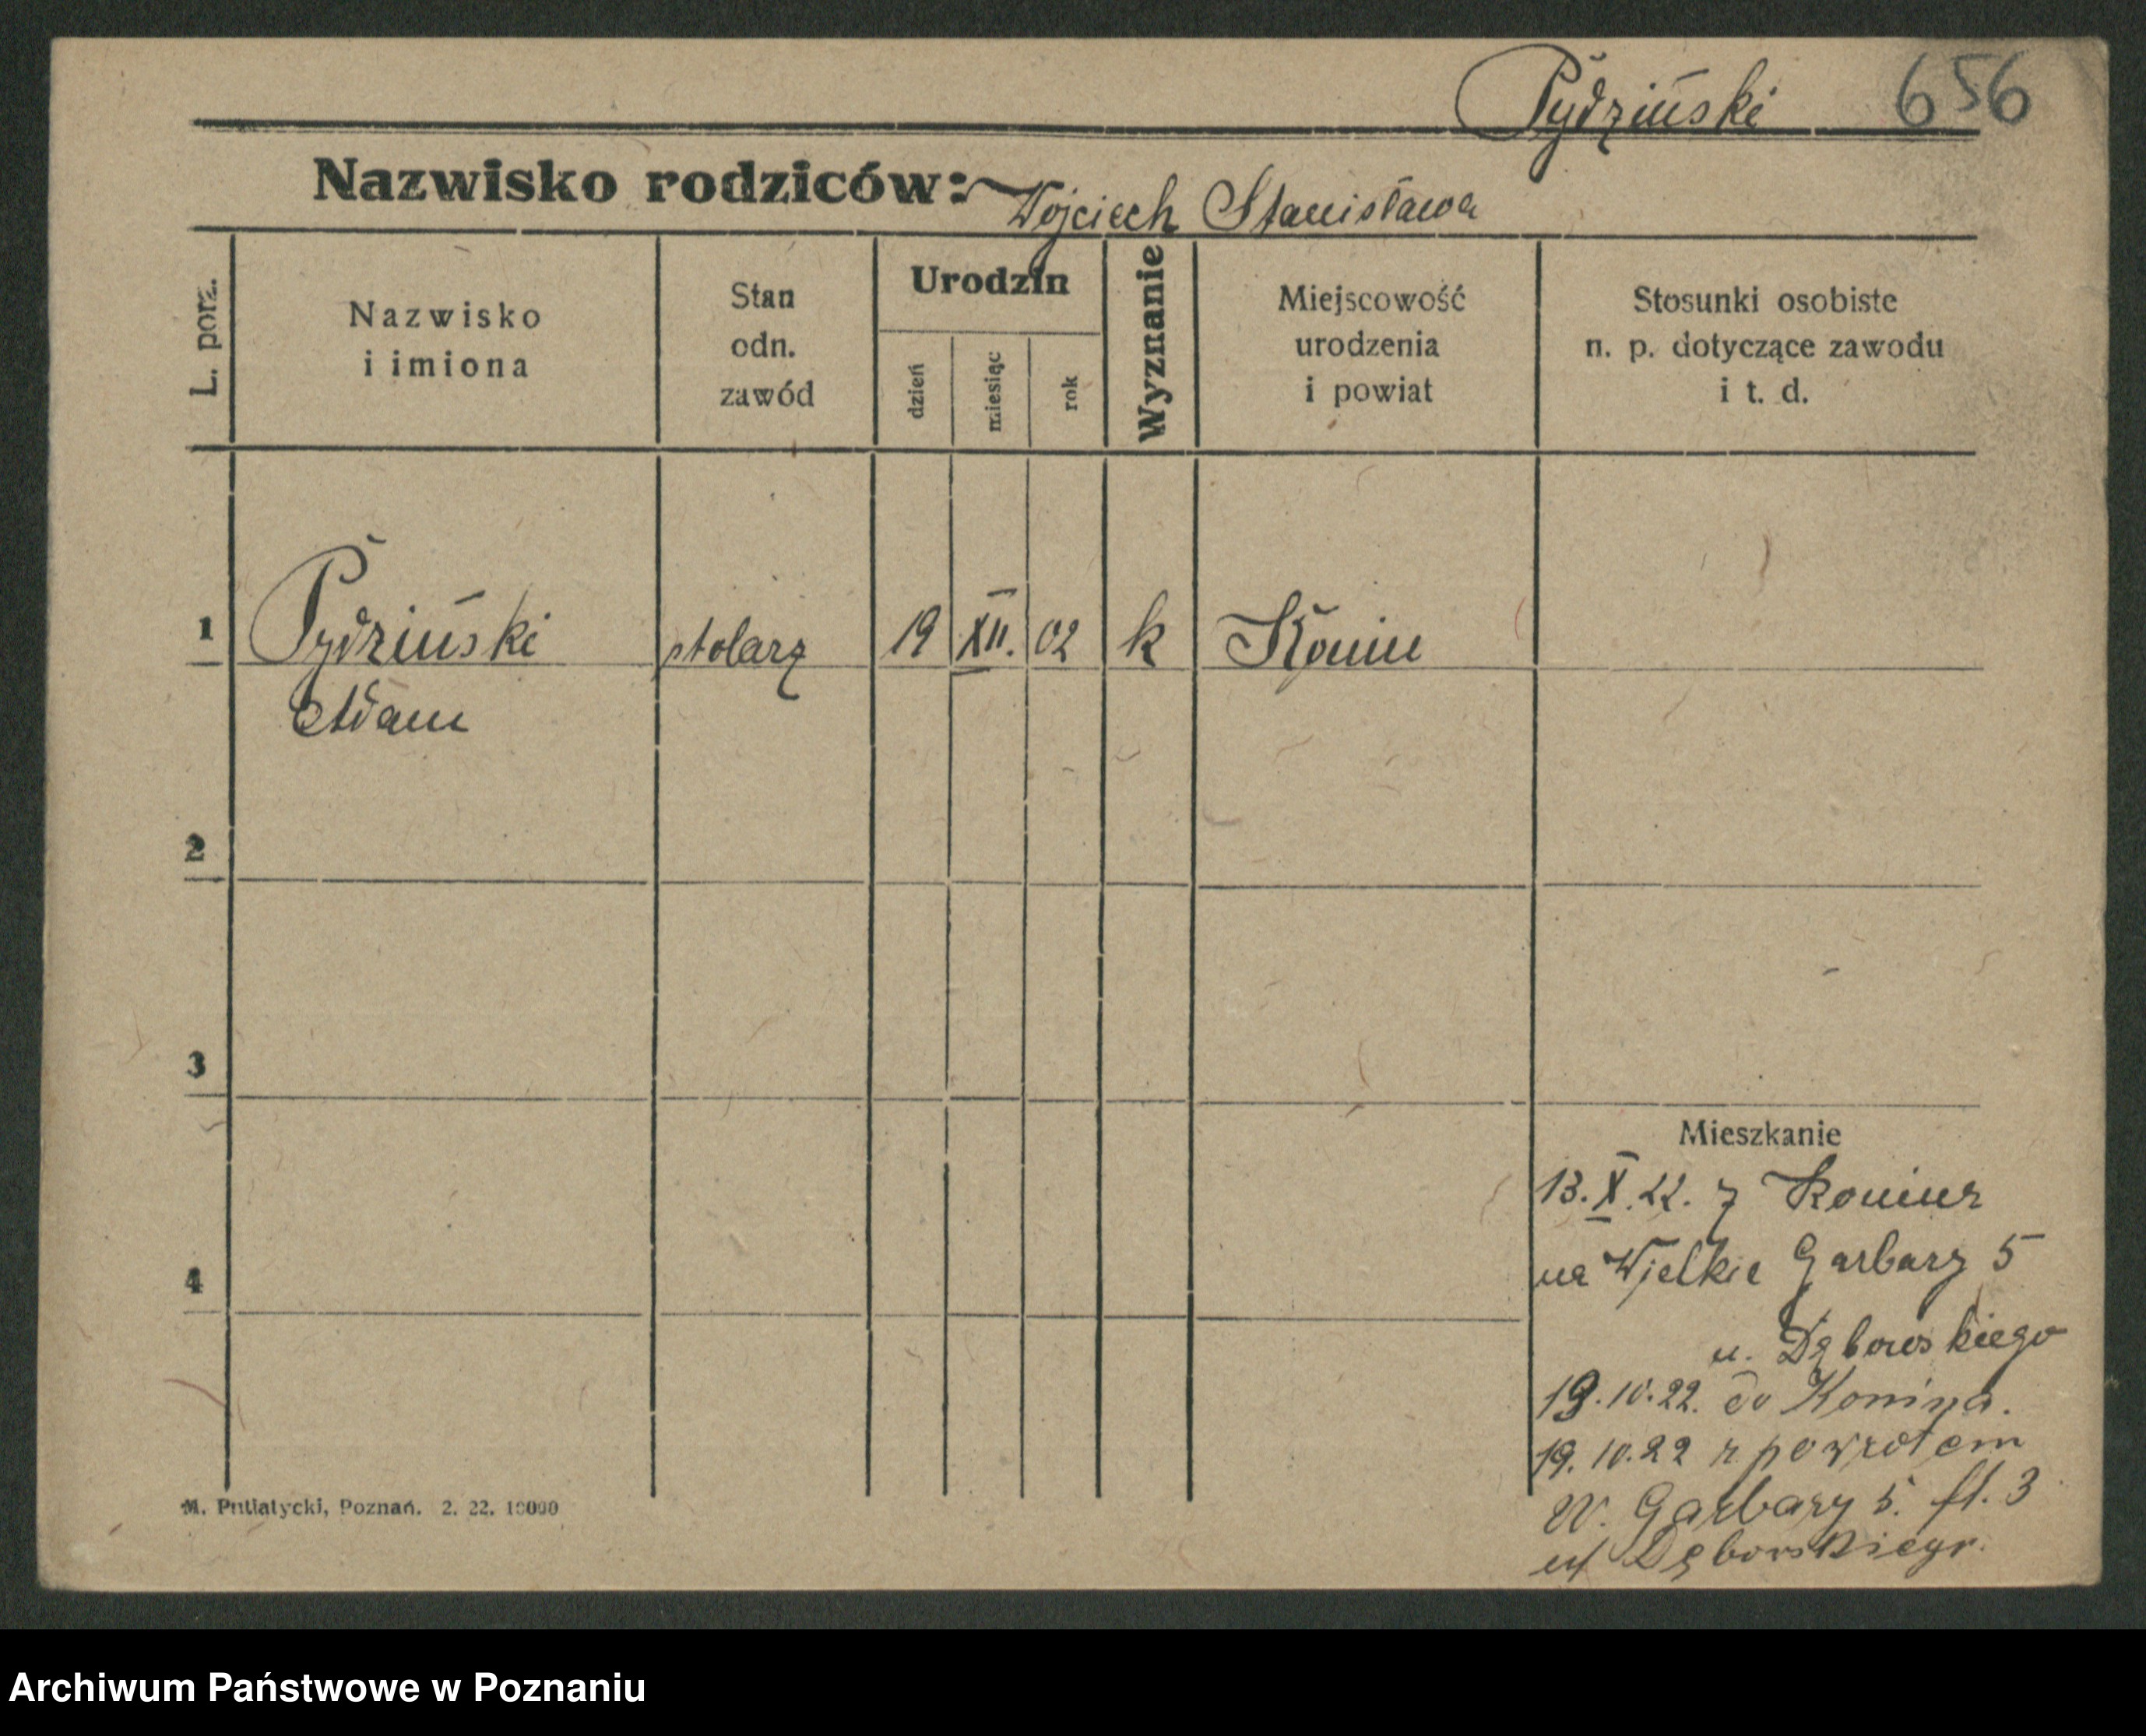 Pydziński 656
Nazwisko rodziców: Wojciech Stanisława
L. porz.
Nazwisko
i imiona
Stan
odn.
zawód
Urodzin
dzień
miesiąc
rok
Wyznanie
Miejscowość
urodzenia
i powiat
Stosunki osobiste
n. p. dotyczące zawodu
i t. d.
1 Pydziński stolarz 19 XII. 02 k Konin
Adam
2
3
4
Mieszkanie
13.X.22. z Konina
na Wielkie Garbary 5
u. Dębowskiego
19.10.22. do Konina.
19.10.22 z powrotem
W. Garbary 5. fl. 3
Dębowskiego.
M. Putiatycki, Poznań. 2. 22. 10000
Archiwum Państwowe w Poznaniu